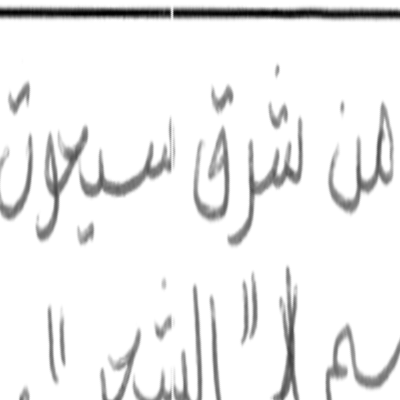 من شرق سيحوت
سم لا "الشحر"